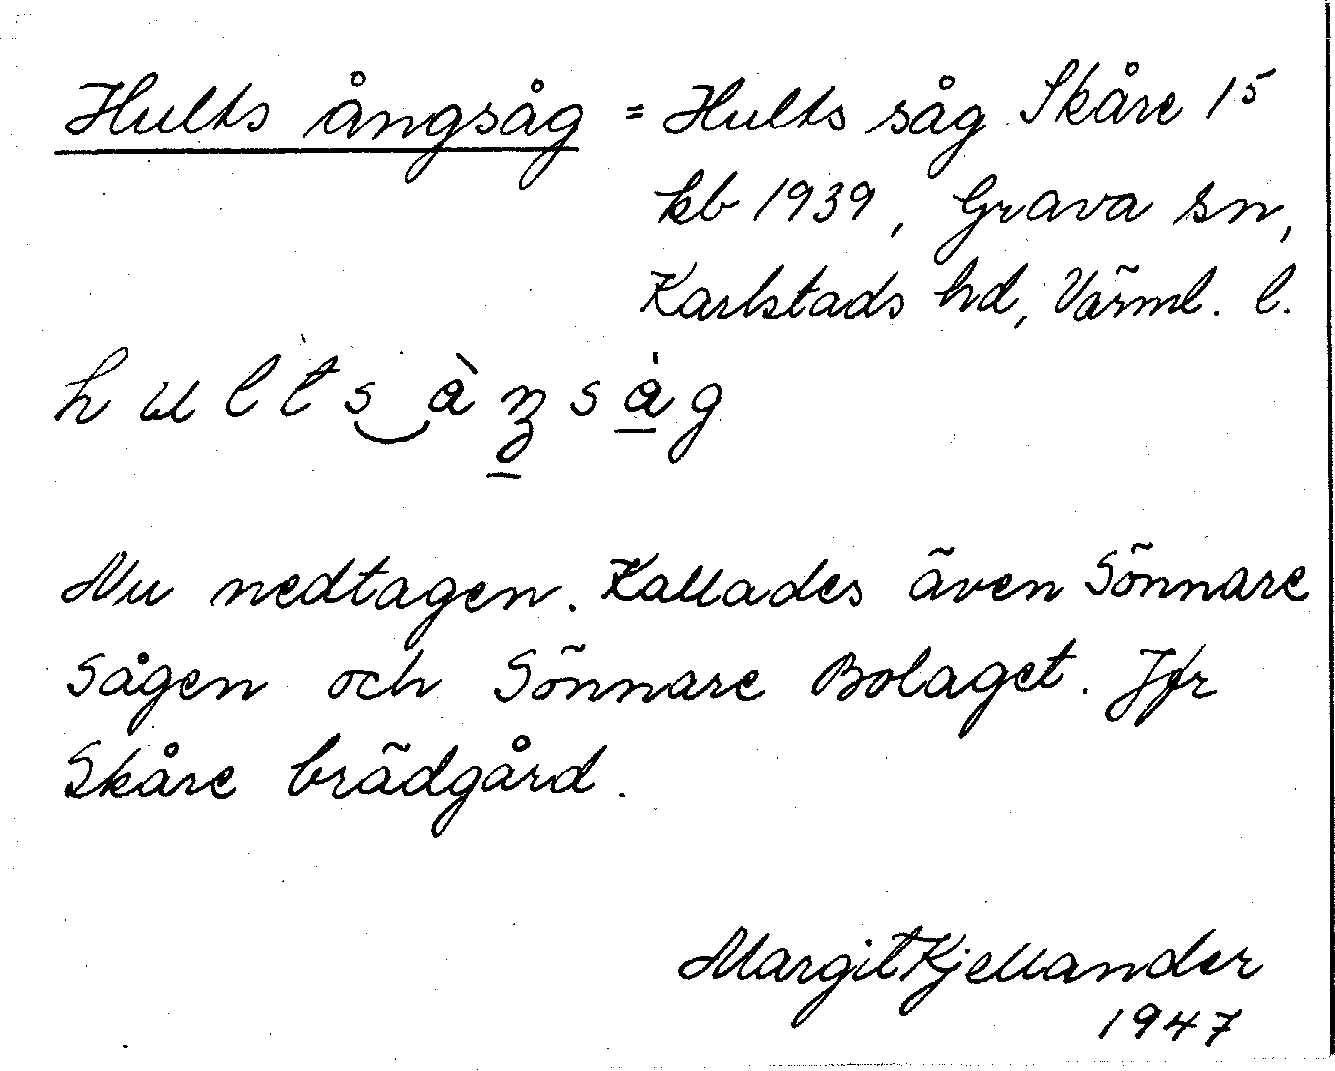 Hults ångsåg = Hults såg Skåre 15
kb 1939, Grava sn,
Karlstads hd, Värml. l.
Nu nedtagen. Kallades även Sönnare
sågen och Sönnare Bolaget. Jfr
Skåre brädgård.
Margit Kjellander
1947